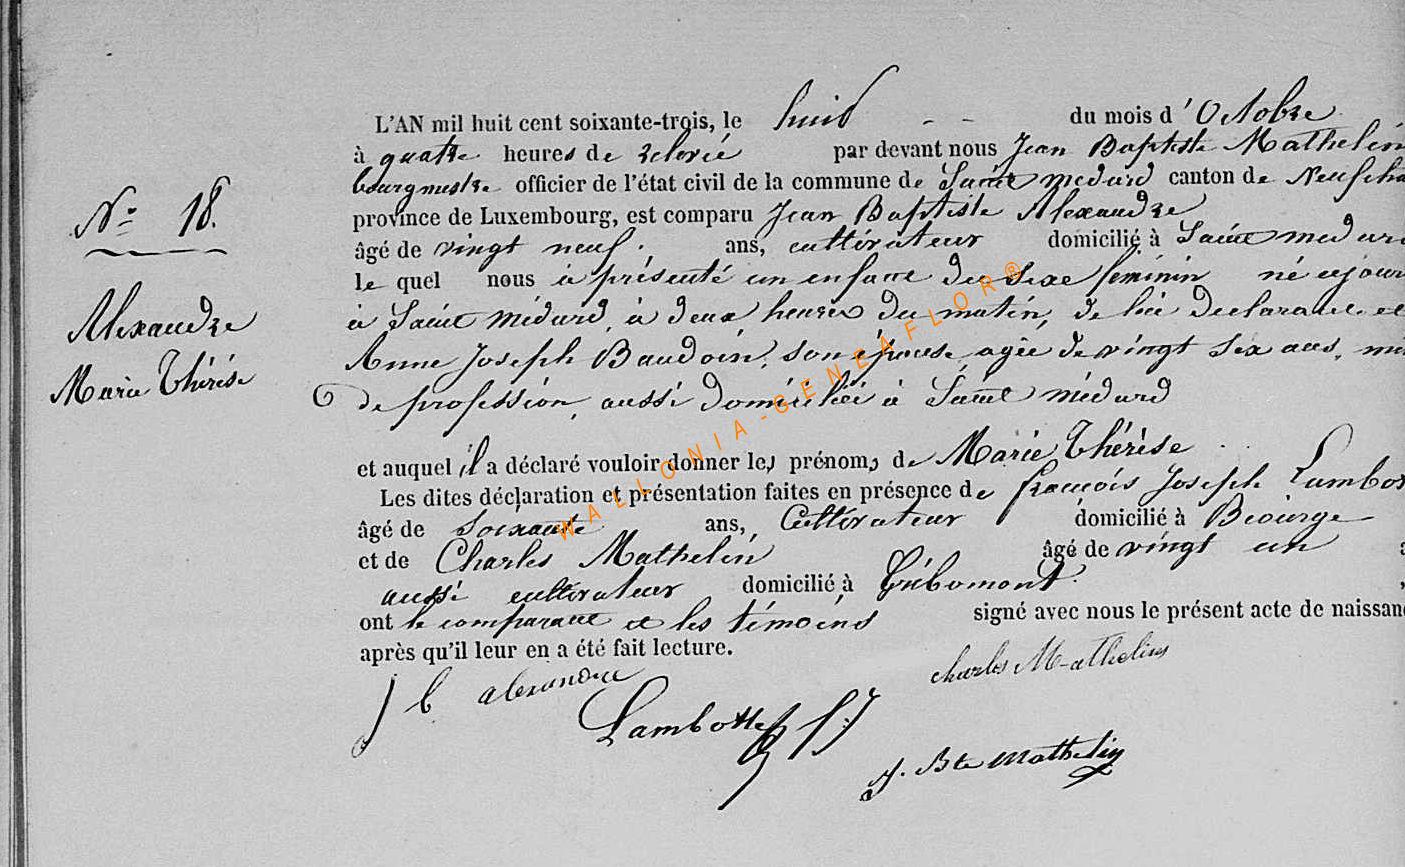 L'AN mil huit cent soixante-trois, le huit - - du mois d'Octobre
à quatre heures de relevée par devant nous Jean Baptiste Mathelin
bourgmestre officier de l'état civil de la commune de Saint médard canton de Neufcha
province de Luxembourg, est comparu Jean Baptiste Alexandre
âgé de vingt neuf. ans, cultivateur domicilié à Saint médard
le quel nous a présenté un enfant du sexe féminin né cejour
à Saint Médard, à deux heures du matin, de lui déclarant et
Anne Joseph Baudoin, son épouse, agée de vingt six ans,
de profession, aussi domiciliée à Saint médard
et auquel il a déclaré vouloir donner les prénoms de Marie Thérèse
Les dites déclaration et présentation faites en présence de françois Joseph Lambot
âgé de soixante ans, Cultivateur domicilié à Biourge
et de Charles Mathelin âgé de vingt un
aussi cultivateur domicilié à Gribomont
ont le comparant et les témoins signé avec nous le présent acte de naissanc
après qu'il leur en a été fait lecture.
N° 18.
Alexandre
Marie Thérèse
J b alexandre
charles Mathelin
Lambotte f J
J. Bte Mathelin
WALLONIA-GENEAFLOR®